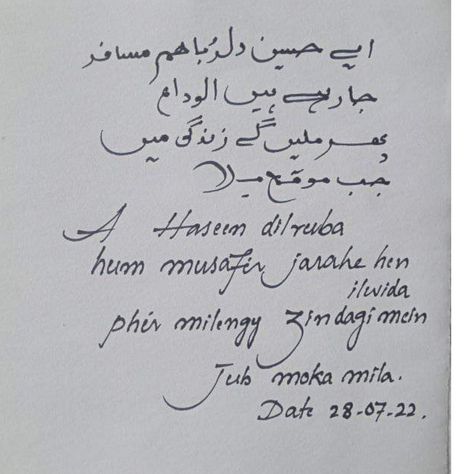 اے حسین دلرُبا ہم مسافر
جارہے ہیں الوداع
پھر ملیں گے زندگی میں
جب موقع میلا
A Haseen dilruba
hum musafir jarahe hen
ilwida
pher milengy Zindagi mein
Jub moka mila.
Date 28-07-22.